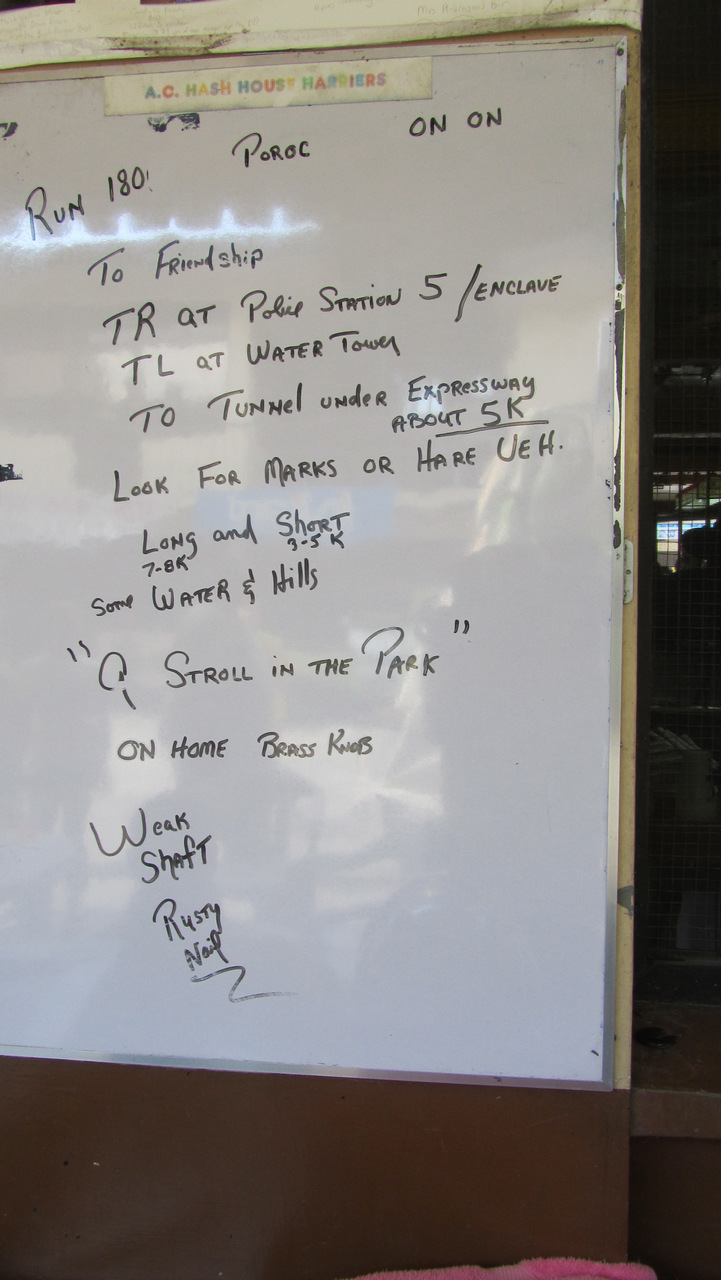 A.C. HASH HOUSE HARRIERS
ON ON
POROC
RUN 180!
To Friendship
TR aT Police STATION 5 / ENCLAVE
TL aT WATER Tower
TO TUNNel under EXPRESSWAY
ABOUT 5K
LOOK FOR MARKS OR HARE VEH.
LONG and SHORT
7-8K 3-5 K
Some WATER & Hills
"A STROLL IN THE PARK"
ON HOME BRASS KNOB
Weak
ShafT
Rusty
Nail